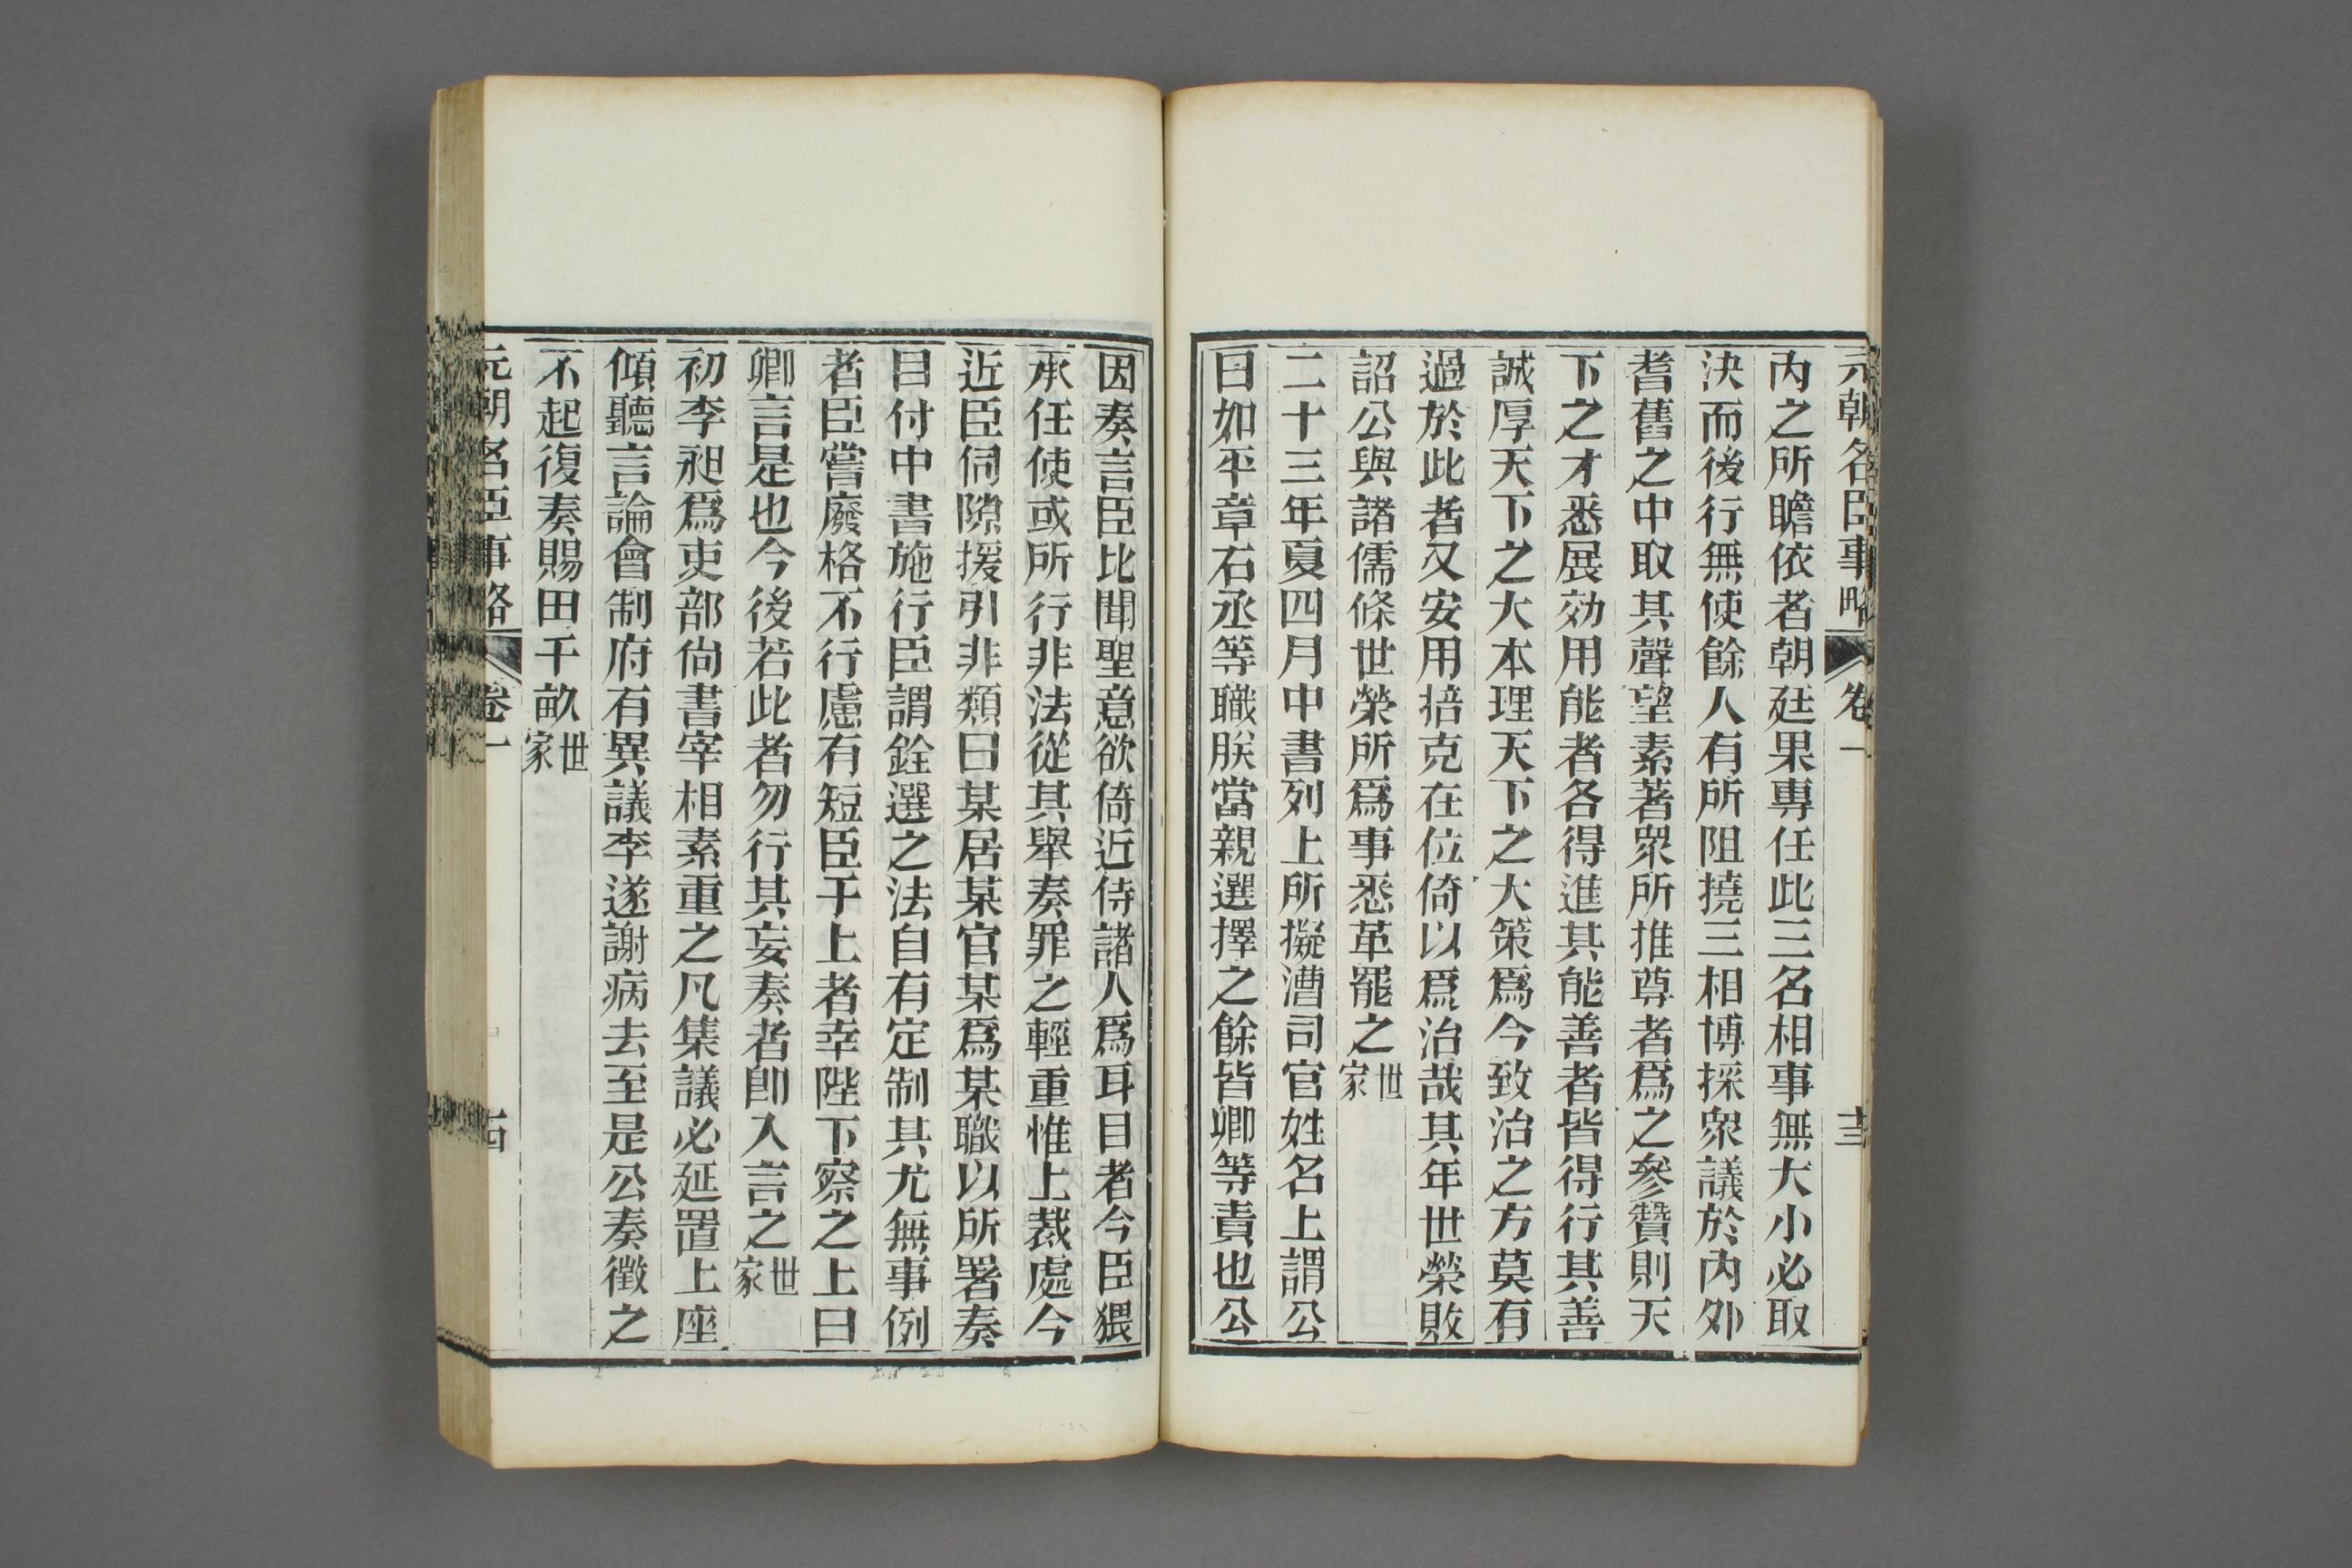 元朝名臣事略 卷一 十三
內之所瞻依者朝廷果專任此三名相事無大小必取
決而後行無使餘人有所阻撓三相博採衆議於內外
耆舊之中取其聲望素著衆所推尊者爲之參贊則天
下之才悉展効用能者各得進其能善者皆得行其善
誠厚天下之大本理天下之大策爲今致治之方莫有
過於此者又安用掊克在位倚以爲治哉其年世榮敗
詔公與諸儒條世榮所爲事悉革罷之世家
二十三年夏四月中書列上所擬漕司官姓名上謂公
曰如平章右丞等職朕當親選擇之餘皆卿等責也公
因奏言臣比聞聖意欲倚近侍諸人爲耳目者今臣猥
承任使或所行非法從其舉奏罪之輕重惟上裁處今
近臣伺隙援引非類曰某居某官某爲某職以所署奏
目付中書施行臣謂銓選之法自有定制其尤無事例
者臣嘗廢格不行慮有短臣于上者幸陛下察之上曰
卿言是也今後若此者勿行其妄奏者卽入言之世家
初李昶爲吏部尙書宰相素重之凡集議必延置上座
傾聽言論會制府有異議李遂謝病去至是公奏徵之
不起復奏賜田千畝世家
元朝名臣事略 卷一 十四